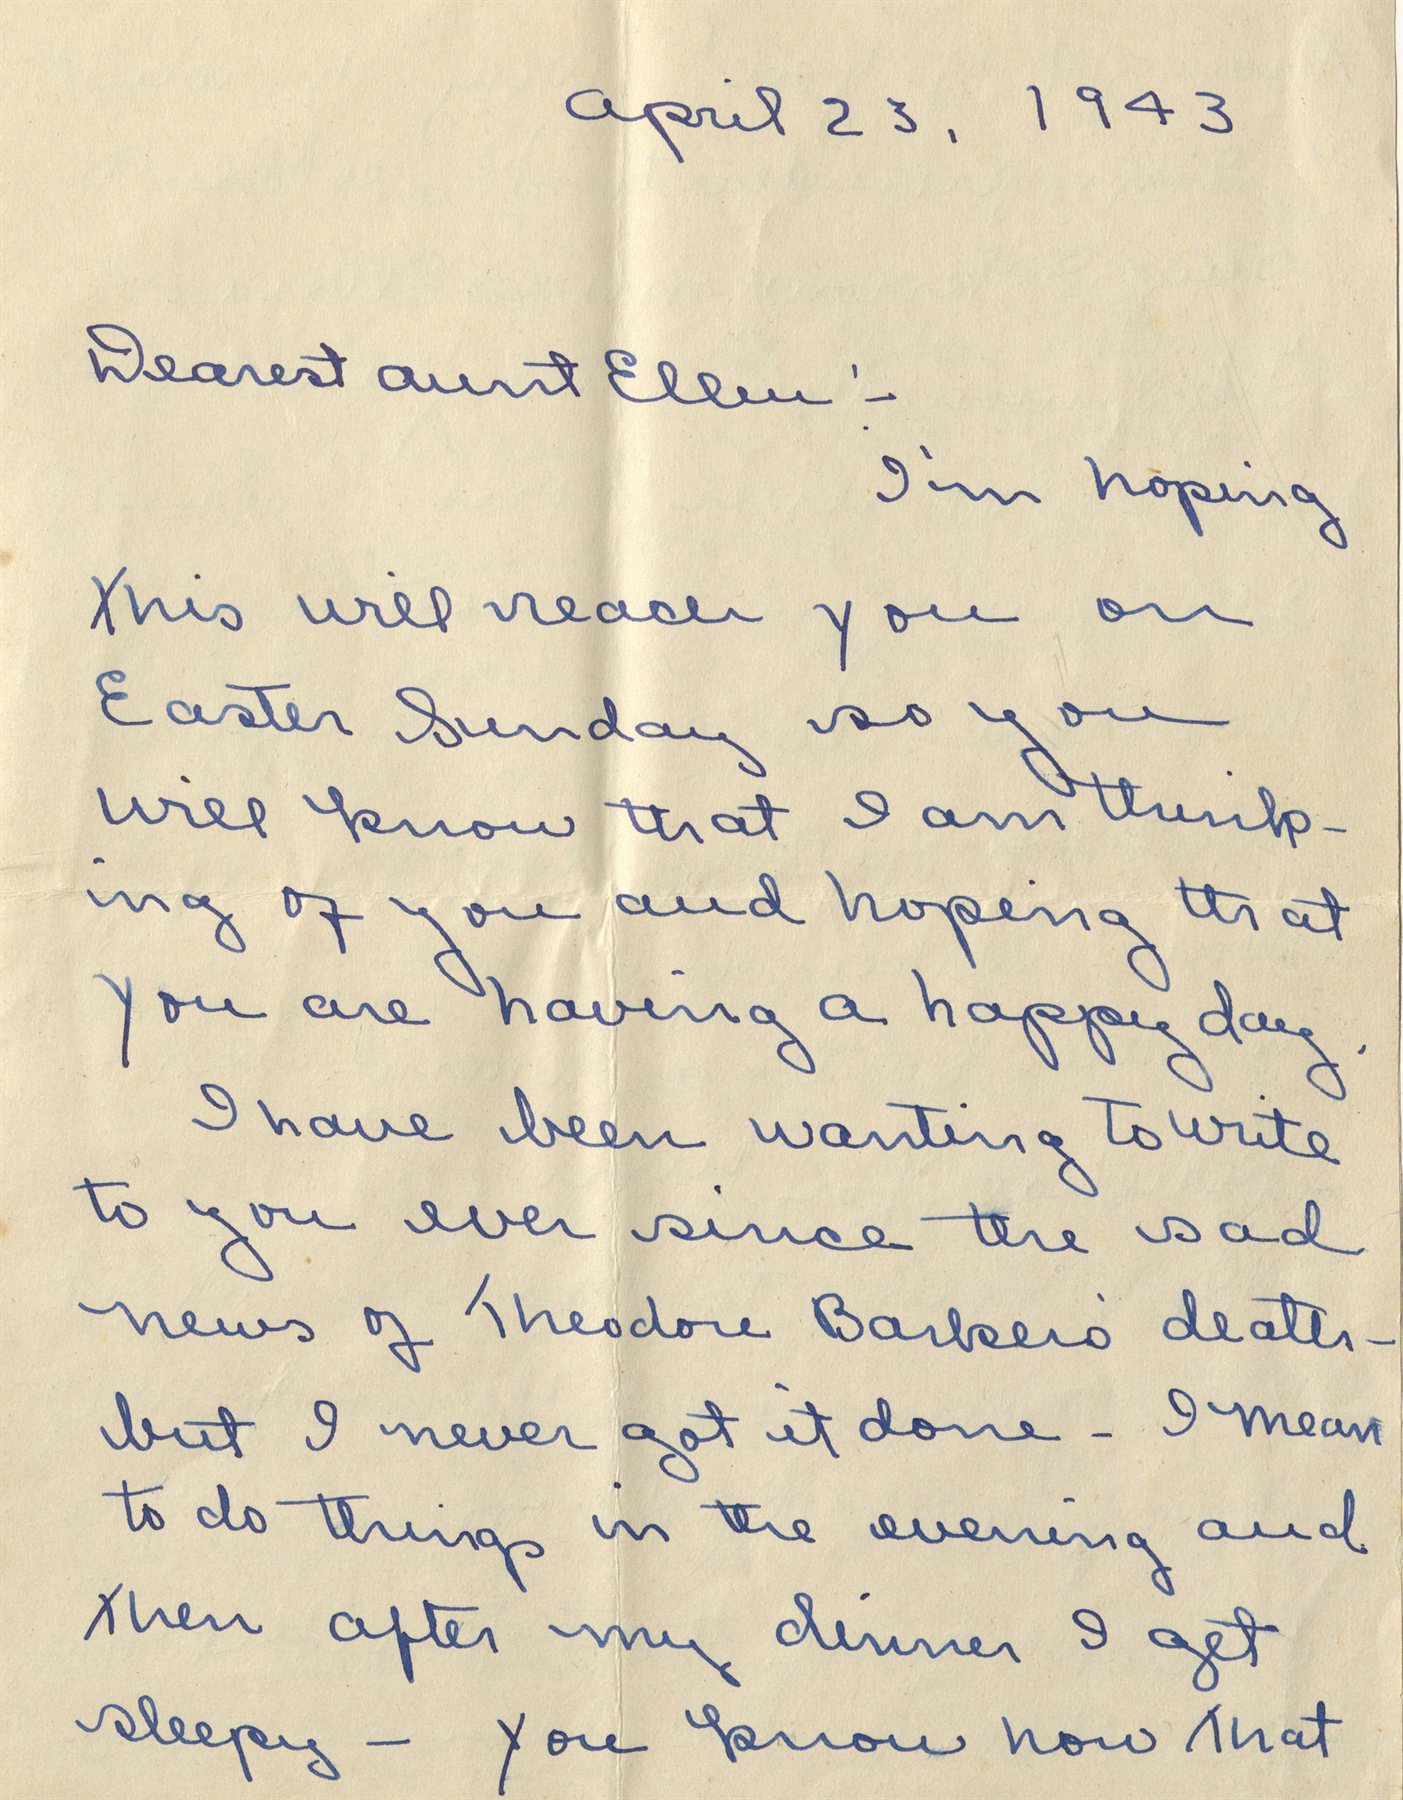 April 23, 1943
Dearest Aunt Ellen:-
I'm hoping
this will reach you on
Easter Sunday so you
will know that I am think-
ing of you and hoping that
you are having a happy day.
I have been wanting to write
to you ever since the sad
news of Theodore Barker's death -
but I never got it done - I mean
to do things in the evening and
then after my dinner I get
sleepy - you know how that